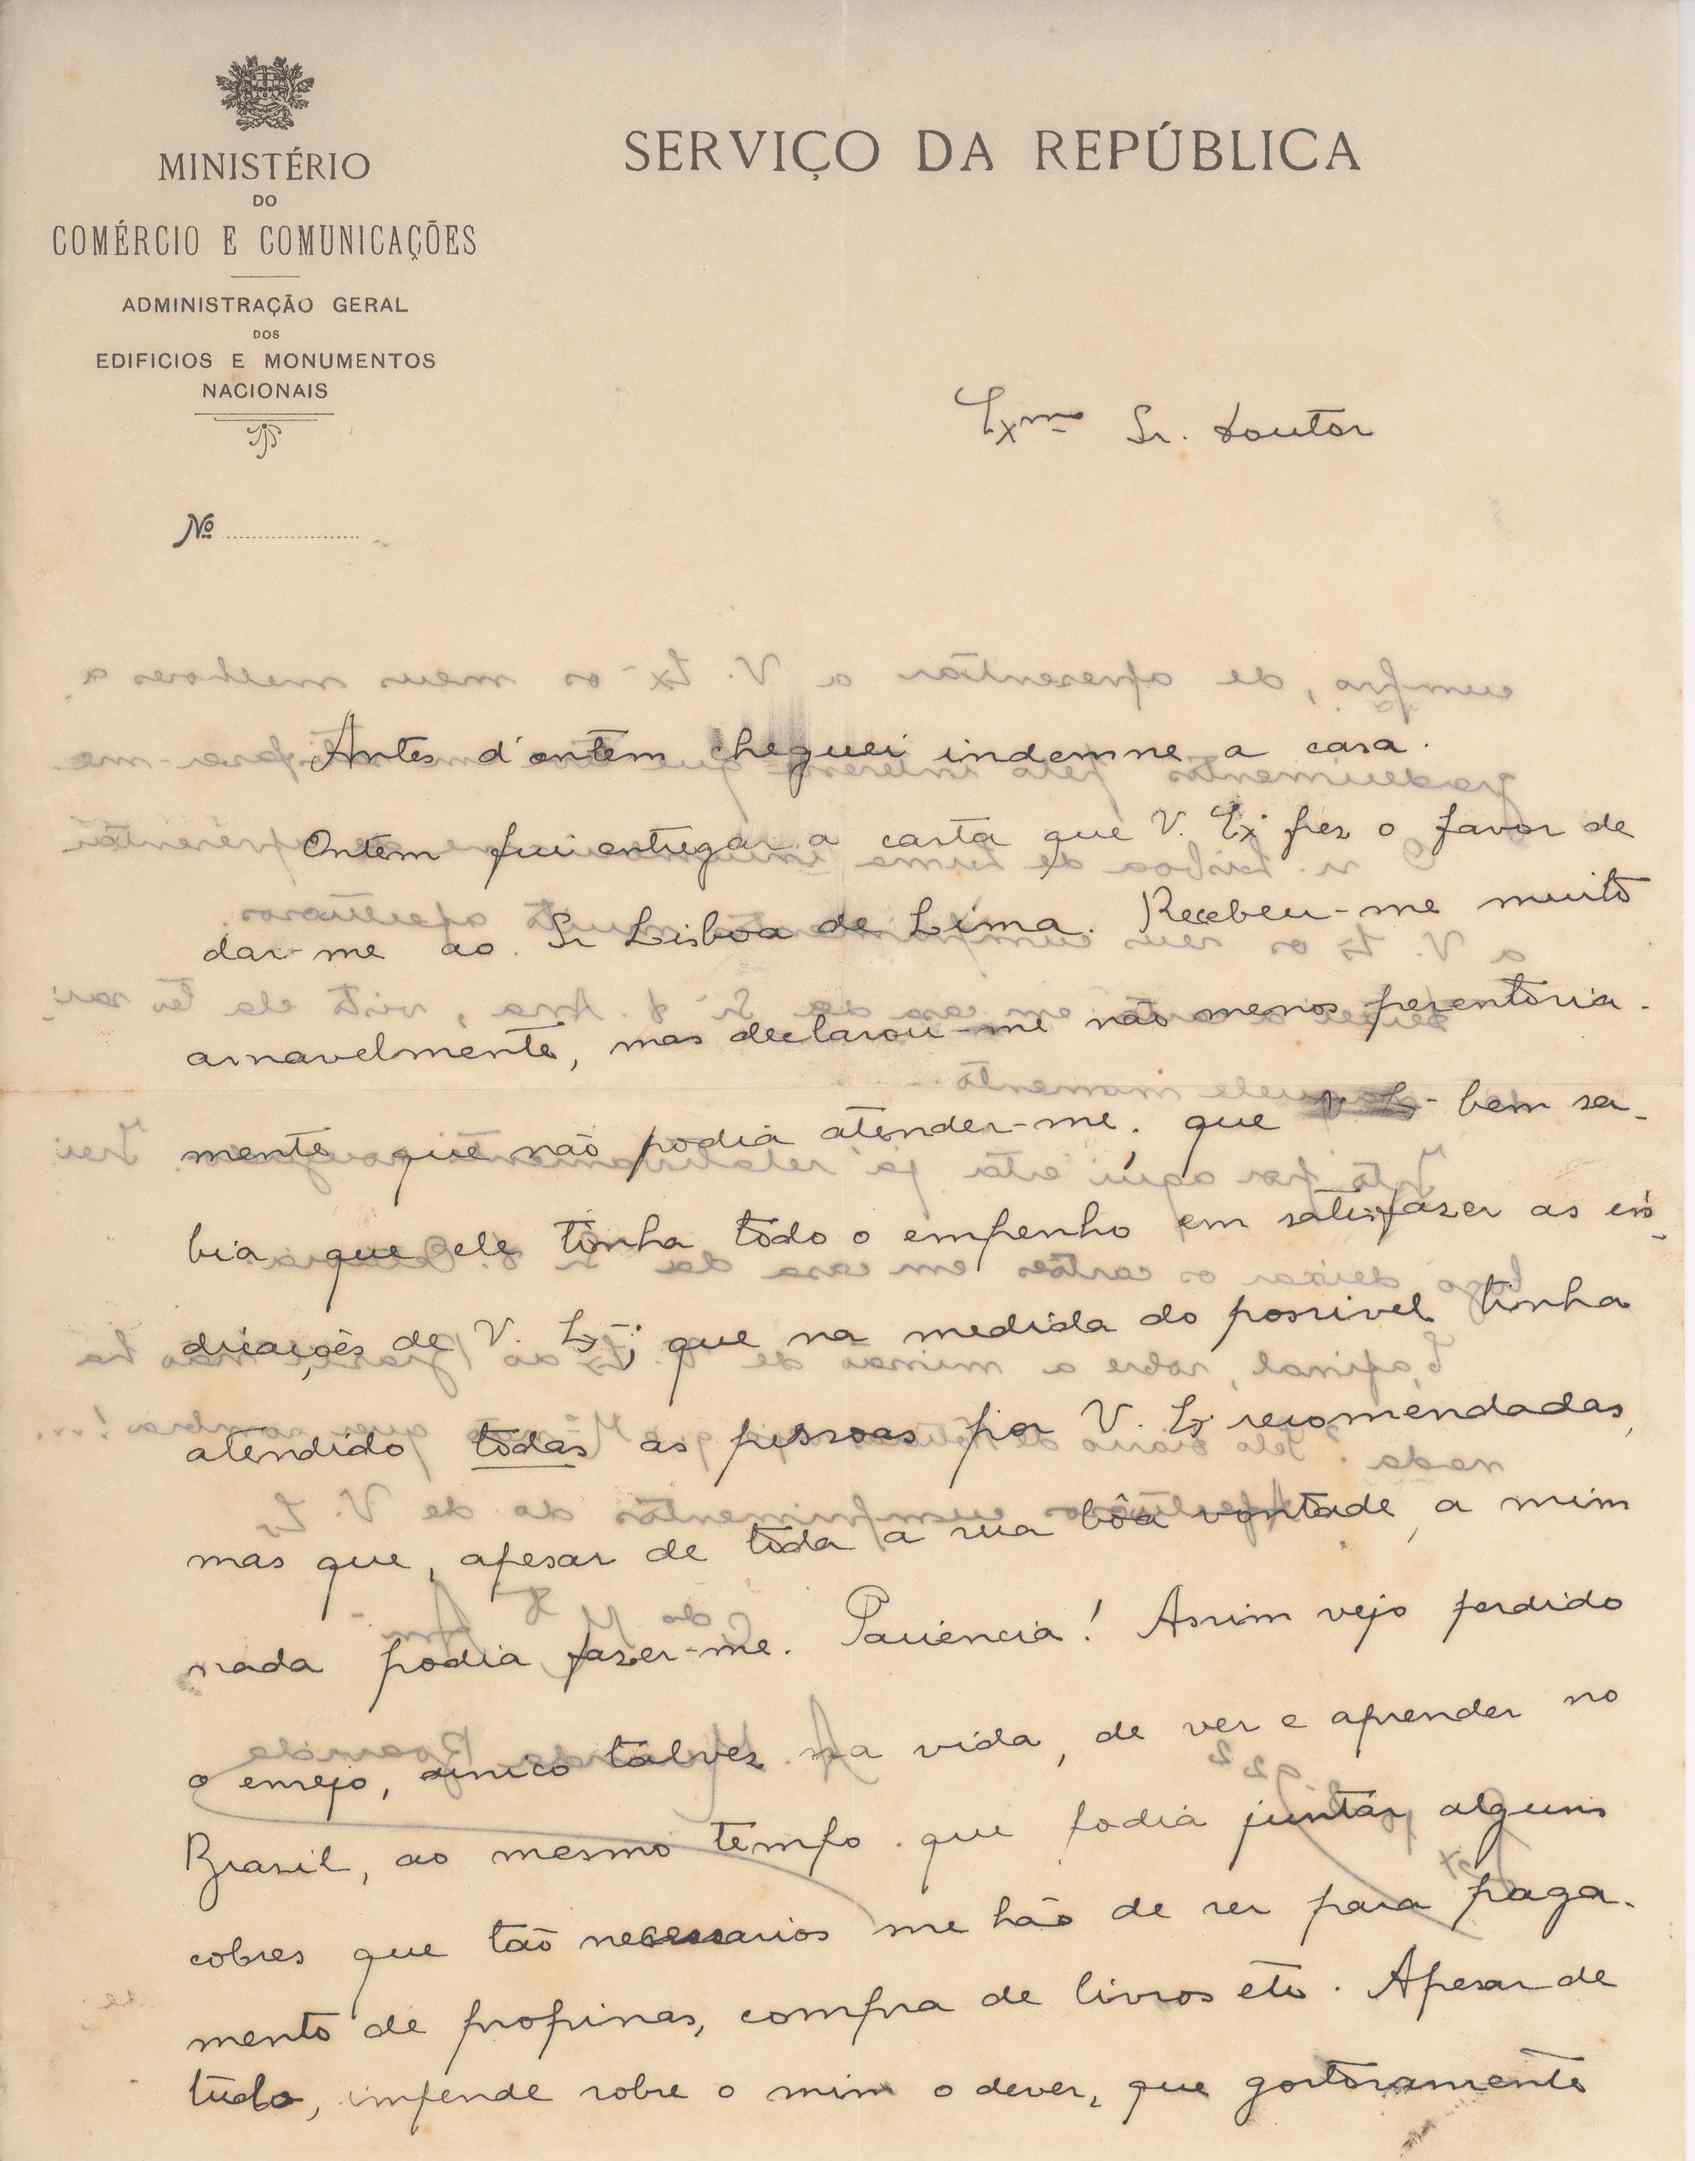 MINISTÉRIO
DO
COMÉRCIO E COMUNICAÇÕES
ADMINISTRAÇÃO GERAL
DOS
EDIFICIOS E MONUMENTOS
NACIONAIS
Nº
SERVIÇO DA REPÚBLICA
Exmo Sr. Doutor
Antes d'ontem cheguei indemne a casa.
Ontem fui entregar a carta que V. Exª fez o favor de
dar-me ao Sr Lisboa de Lima. Recebeu-me muito
amavelmente, mas declarou-me não menos perentoria-
mente que não podia atender-me; que bem sa-
bia que ele tinha todo o empenho em satisfazer as in-
dicações de V. Exª; que na medida do possivel tinha
atendido todas as pessoas por V. Exª recomendadas,
mas que, apesar de toda a sua bôa vontade, a mim
nada podia fazer-me. Paciencia! Assim vejo perdido
o ensejo, unico talvez na vida, de ver e aprender no
Brasil, ao mesmo tempo que podia juntar alguns
cobres que tão necessarios me hão de ser para paga-
mento de propinas, compra de livros etc. Apesar de
tudo, impende sobre o mim o dever, que gostosamente